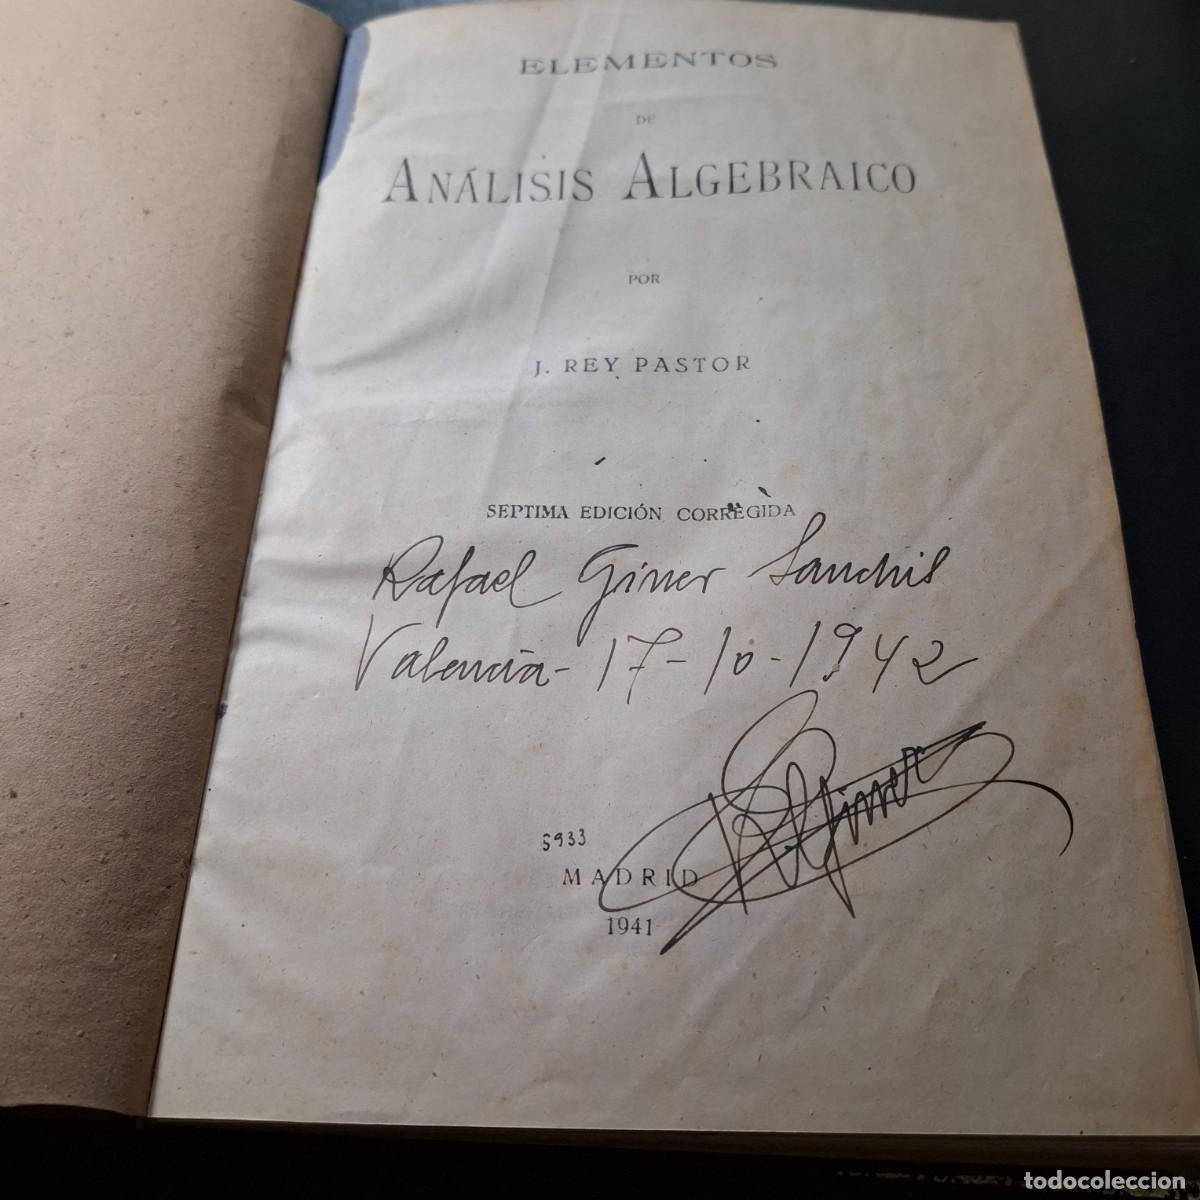 ELEMENTOS
DE
ANÁLISIS ALGEBRAICO
POR
J. REY PASTOR
SEPTIMA EDICIÓN CORREGIDA
Rafael Giner Sanchis
Valencia - 17-10-1942
R Giner
5933
MADRID
1941
todocoleccion